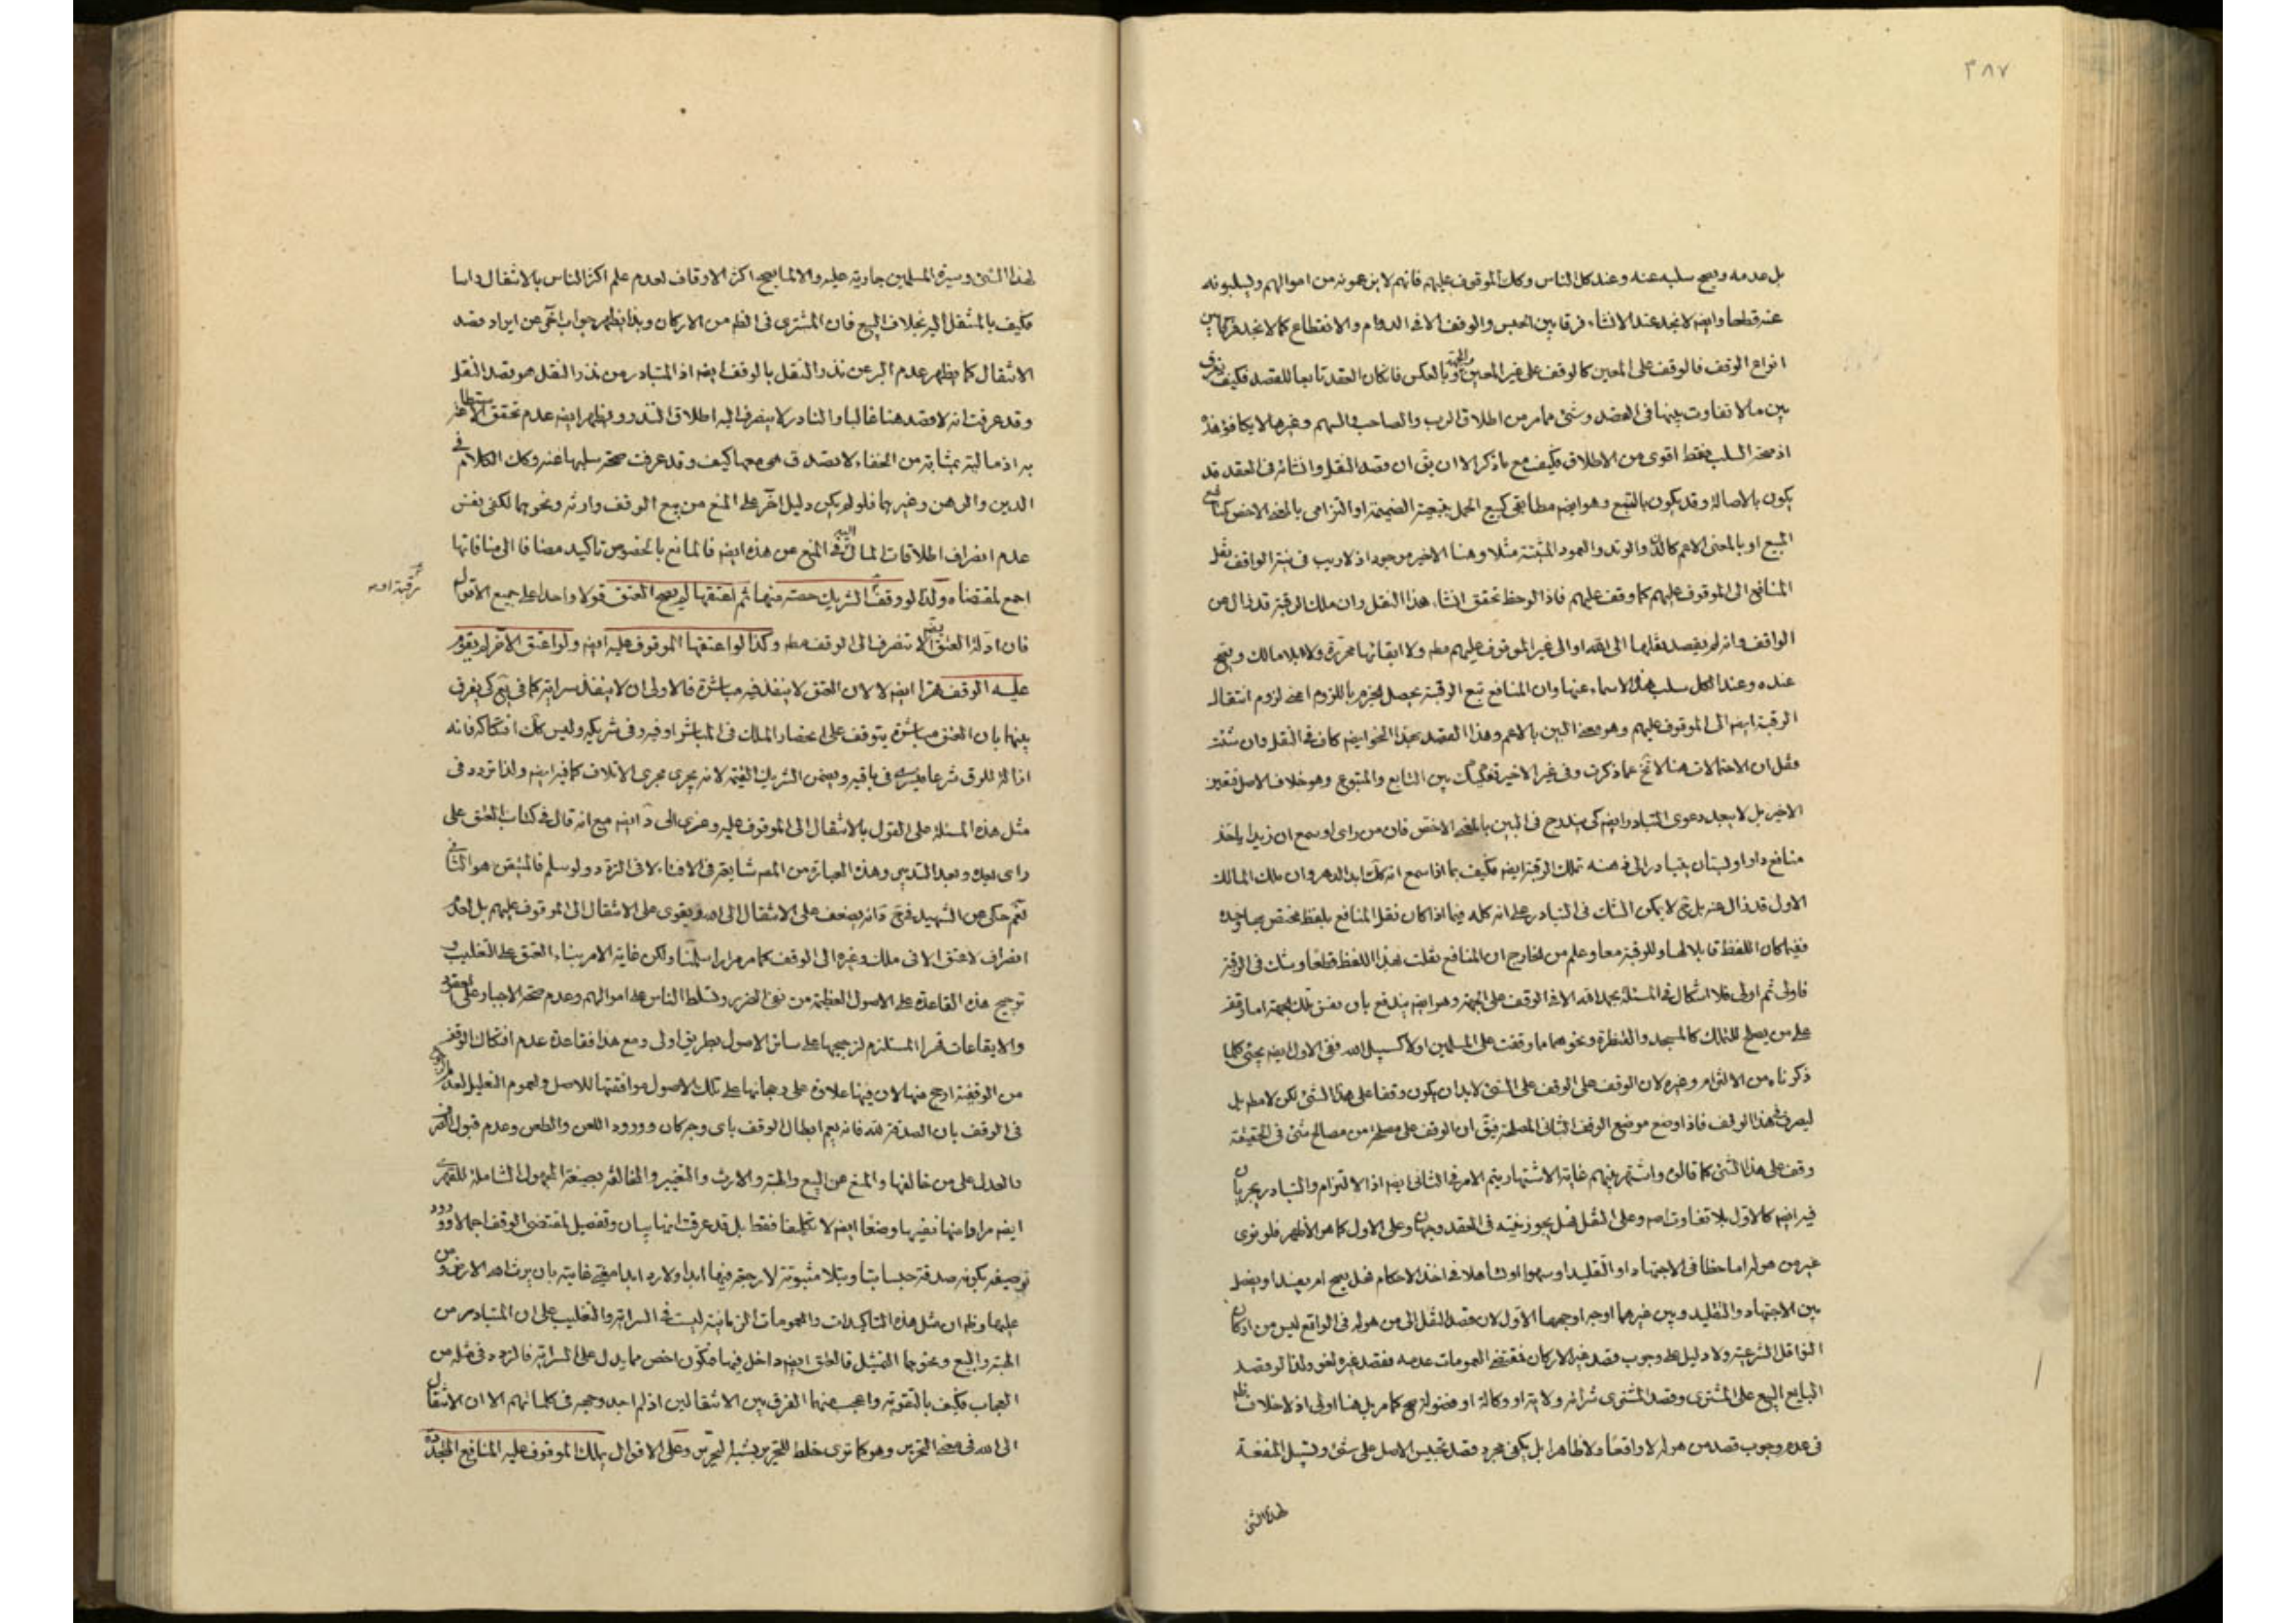 ٣٨٧
بل عدمه ويصح سلبه عنه وعند كل الناس وكك الموقوف عليهم فانهم لا يزعمونه من اموالهم ويسلبونه
عنه قطعا وايضا لا نجد عند الانشاء فرقا بين الحبس والوقف الا في الدوام والانقطاع كما لا نجد فرقا بين
انواع الوقف فالوقف على المعين كالوقف على غير المعين والجهة وبالعكس فاذا كان العقد تابعا للقصد فكيف يفرق
بين ما لا تفاوت بينها في القصد وشئ مما مر من اطلاق الرب والصاحب والسهم وغيرها لا يكافؤ هذا
اذ صحة السلب فقط اقوى من الاطلاق فكيف مع ما ذكر الا ان يق ان قصد النقل وانشائه في العقد قد
يكون بالاصالة وقد يكون بالتبع وهو ايضا مطابقي كبيع الحمل بتبعية الضميمة او التزامي بالمعنى الاخص كمنافع
المبيع او بالمعنى الاعم كالدار والوتد والعمود المثبتة مثلا وهنا الاخير موجود اذ لا ريب في نية الواقف نقل
المنافع الى الموقوف عليهم كما وقف عليهم فاذا لوحظ تحقق انشاء هذا النقل وان ملك الرقبة قد زال عن
الواقف وانه لم يقصد نقلها الى الله او الى غير الموقوف عليهم مطه ولا ابقائها محررة ولا بلا مالك ويصح
عنده وعند الكل سلب هذه الاسماء عنها وان المنافع تبع الرقبة يحصل الجزم باللزوم اعني لزوم انتقال
الرقبة ايضا الى الموقوف عليهم وهو معنى البين بالاعم وهذا القصد بهذا النحو ايضا كاف في النقل وان شئت
فقل ان الاحتمالات هنا لا تخ عما ذكرت وفي غير الاخير تفكيك بين التابع والمتبوع وهو خلاف الاصل فتعين
الاخير بل لا يبعد دعوى التبادر ايضا كي يندرج في البين بالمعنى الاخص فان من راى او سمع ان زيدا ياخذ
منافع دار او بستان يتبادر الى ذهنه تملك الرقبة ايضا فكيف بما اذا سمع انه كك ابد الدهر وان ملك المالك
الاول قد زال عنه بل ح لا يمكن الشك في التبادر على انه كله فيما اذا كان نقل المنافع بلفظ مختص بها وحده
ففيما كان اللفظ قابلا لها وللرقبة معا وعلم من الخارج ان المنافع نقلت بهذا اللفظ قطعا وشك في الرقبة
فاولى ثم اولى فلا اشكال في المسئلة بحمد الله الا في الوقف على الجهة وهو ايضا يندفع بان نفس تلك الجهة اما وقف
على من يصلح للتملك كالمسجد والقنطرة ونحوهما مما وقفت على المسلمين او لا كسبيل الله ففي الاول ايضا يجئ كلما
ذكرناه من الالتزام وغيره لان الوقف على الوقف على الشئ لا بد ان يكون وقفا على هذا الشئ لكن لا مطه بل
ليصرف في هذا الوقف فاذا وضع موضع الوقف الثاني المصلحة فيق ان الوقف على مصلحة من مصالح شئ في الحقيقة
وقف على هذا الشئ كما قالوا واشتهر بينهم غاية الاشتهار يتم الامر في الثاني ايضا اذ الالتزام والتبادر يجريان
فيه ايضا كالاول بلا تفاوت اصلا وعلى النقل فهل يجوز نيته في العقد وجهان وعلى الاول كما هو الاظهر فلو نوى
غير من هو له اما خطا في الاجتهاد او التقليد او سهوا او تساهلا في اخذ الاحكام فهل يصح ام يفسد او يفصل
بين الاجتهاد والتقليد وبين غيرهما اوجه اوجهها الاول لان قصد النقل الى من هو له في الواقع ليس من اركان
النواقل الشرعية ولا دليل على وجوب قصد غير الاركان فمقتضى العمومات عدمه فقصد غيره لغو ولذا لو قصد
البايع البيع على المشتري وقصد المشتري شرائه ولاية او وكالة او فضولة صح كما مر بل هنا اولى اذ لا خلاف
في عدم وجوب قصد من هو له لا واقعا ولا ظاهرا بل يكفي مجرد قصد تحبيس الاصل على شئ وتسبيل المنفعة
لهذا الشئ
لهذا الشئ وسيرة المسلمين جارية عليه والا لما يصح اكثر الاوقاف لعدم علم اكثر الناس بالانتقال راسا
فكيف بالمنتقل اليه بخلاف البيع فان المشتري في الظم من الاركان وبهذا يظهر جواب اخر عن ايراد قصد
الانتقال كما يظهر عدم البر عن نذر النقل بالوقف ايضا اذ المتبادر من نذر النقل هو قصد النقل
وقد عرفت انه لا قصد هنا غالبا والنادر لا ينصرف اليه اطلاق النذر ويظهر ايضا عدم تحقق الاستطاعة
به اذ ماليته بمثابة من الخفاء لا تصدق هي معها كيف وقد عرفت صحة سلبها عنه وكك الكلام في
الدين والرهن وغيرهما فلو لم يكن دليل اخر على المنع من بيع الوقف وارثه ونحوهما لكفى نفس
عدم انصراف اطلاقات المال اليه في المنع عن هذه ايضا فالمانع بالخصوص تاكيد مضافا الى منافاتها
اجمع لمقتضاه ولذا لو وقف الشريك حصته منها ثم اعتقها لم يصح العتق قولا واحدا على جميع الاقوال
فان ادلة العتق لا تنصرف الى الوقف مطه وكذا لو اعتقها الموقوف عليه ايضا ولو اعتق الاخر لم يقوم
عليه الوقف قهرا ايضا لا لان العتق لا ينفذ فيه مباشرة فالاولى ان لا ينفذ سراية كما في يع كي يفرق
بينهما بان العتق مباشرة يتوقف على انحصار الملك في المباشر او فيه وفي شريكه وليس كك افتكاكه فانه
ازالة للرق شرعا فيسري في باقيه ويضمن الشريك القيمة لانه يجري مجرى الاتلاف كما فيه ايضا ولذا تردد في
مثل هذه المسئلة على القول بالانتقال الى الموقوف عليه وعزى الى د ايضا مع انه قال في كتاب العتق على
راى بعيد وبعد التدبير وهذه العبارة من المصه شايعة في الافتاء لا في التردد ولو سلم فالمتيقن هو الثاني
نعم حكى عن الشهيد فرج فانه يضعف على الانتقال الى الله ويقوى على الانتقال الى الموقوف عليهم بل لعدم
انصراف لا عتق الا في ملك وغيره الى الوقف كما مر مرارا سلمنا ولكن غاية الامر بناء العتق على التغليب و
ترجيح هذه القاعدة على الاصول العظيمة من نفى الضرر وتسلط الناس على اموالهم وعدم صحة الاجبار على العقود
والايقاعات قهرا المستلزم لترجيحها على سائر الاصول بطريق اولى ومع هذا فقاعدة عدم افتكاك الوقف
من الوقفية ارجح منها لان فيها علاوة على رجحانها على تلك الاصول موافقتها للاصل ولعموم التعليل لعدم
في الوقف بان الصدقة لله فانه يعم ابطال الوقف باى وجه كان وورود اللعن والطعن وعدم قبول الصرف
والعدل على من خالفها والمنع عن البيع والهبة والارث والتغيير والمخالفة بصيغة المجهول الشاملة للقهرى
ايضا مرادا منها نفيها وضعا ايضا لا تكليفا فقط بل قد عرفت انها بيان وتفصيل لمقتضى الوقف اجمالا وورود
توصيفه بكونه صدقة حبسا بتا وبتلا مثبوتة لا رجعة فيها ابدا ولا رد ابدا مغيى غايته بان يرث الله الارض ومن
عليها وظه ان مثل هذه التاكيدات والعمومات الزمانية ليست في السراية والتغليب على ان المتبادر من
الهبة والبيع ونحوهما التمثيل فالعتق ايضا داخل فيها فتكون اخص مما يدل على السراية فالتردد في مثله من
العجاب فكيف بالتقوية واعجب منهما الفرق بين الانتقالين اذ لم اجد وجهه في كلماتهم الا ان الانتقال
الى الله في معنى التحرير وهو كما ترى خلط للتحرير بشبه التحرير وعلى الاقوال يملك الموقوف عليه المنافع المتجددة